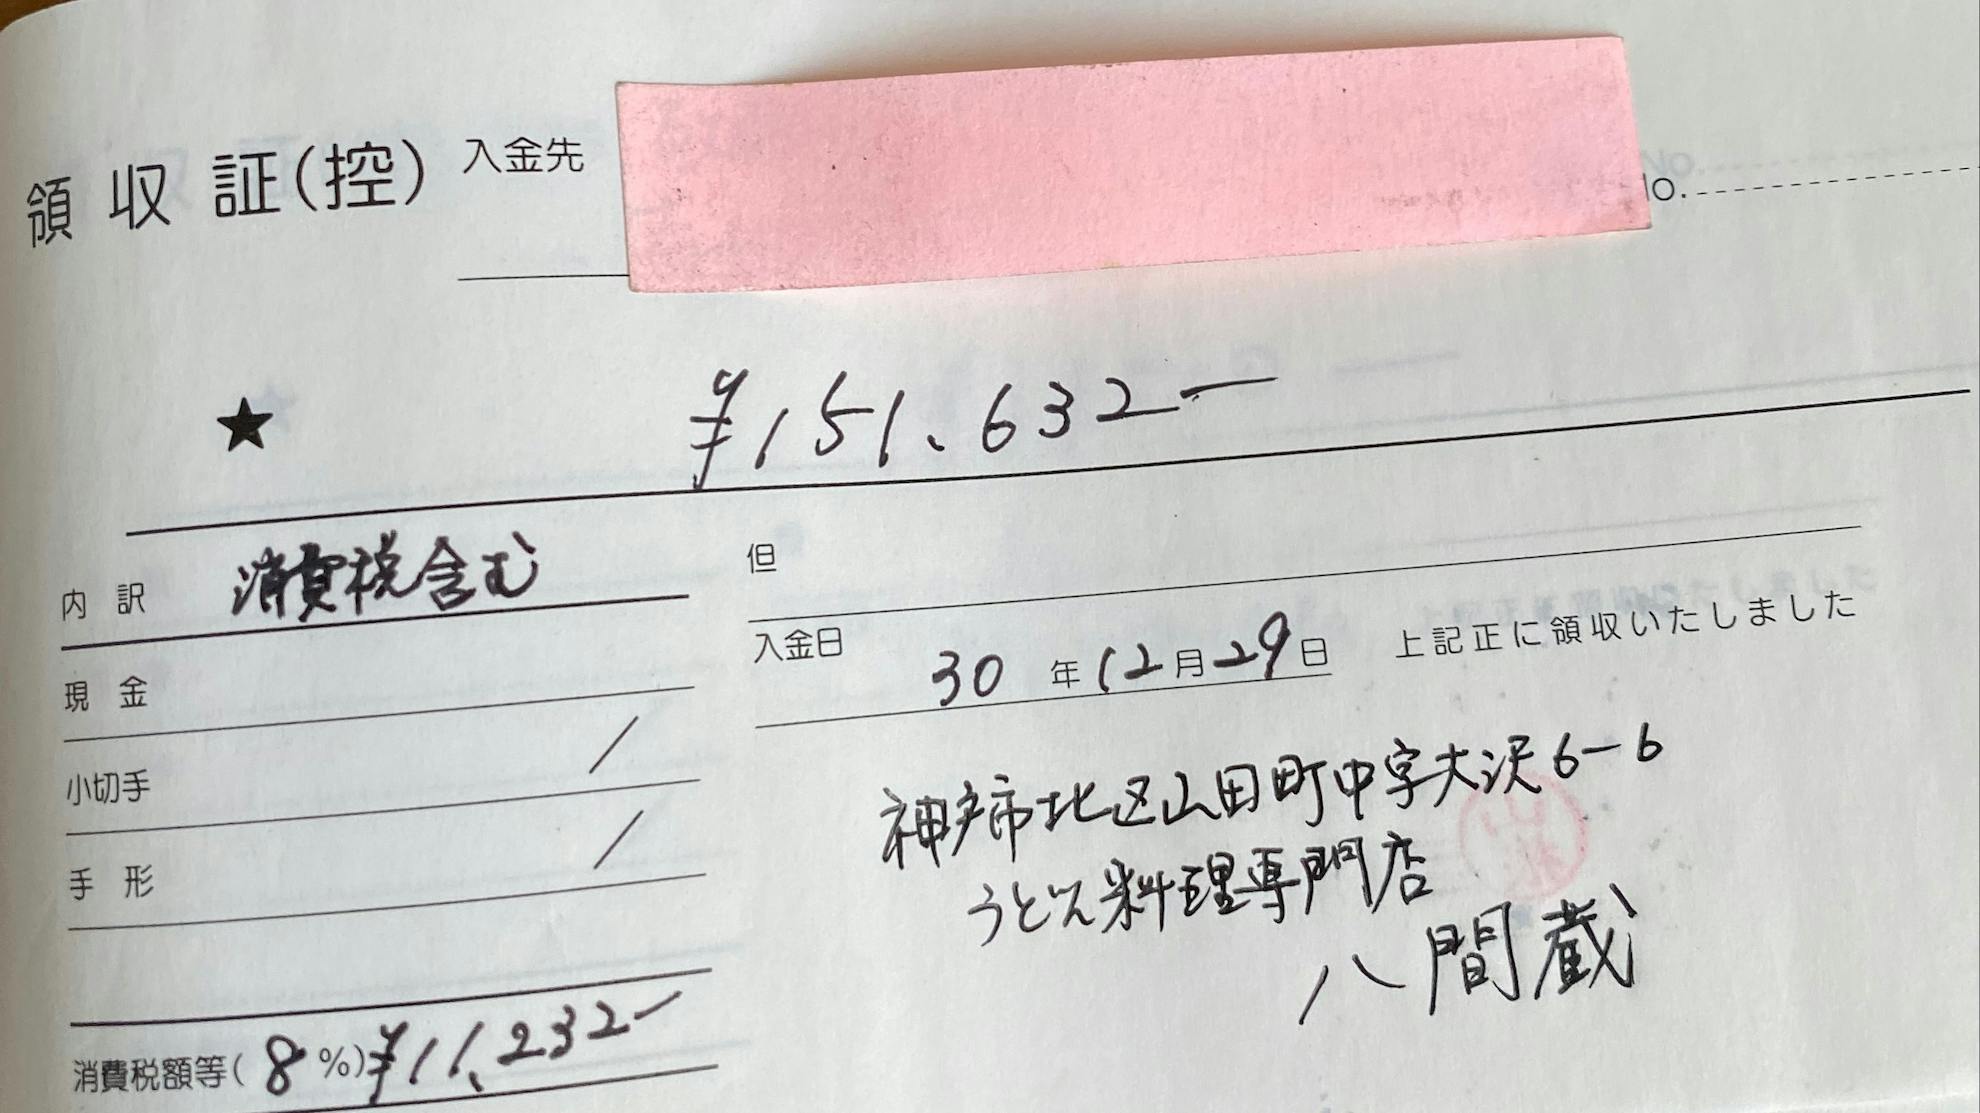 領収証(控) 入金先
No.
★ ¥151,632-
内訳 消費税含む
但
現金
入金日 30年12月29日 上記正に領収いたしました
小切手 /
手形 /
神戸市北区山田町中字大沢6-6
うどん料理専門店
八間蔵
消費税額等(8%)¥11,232-